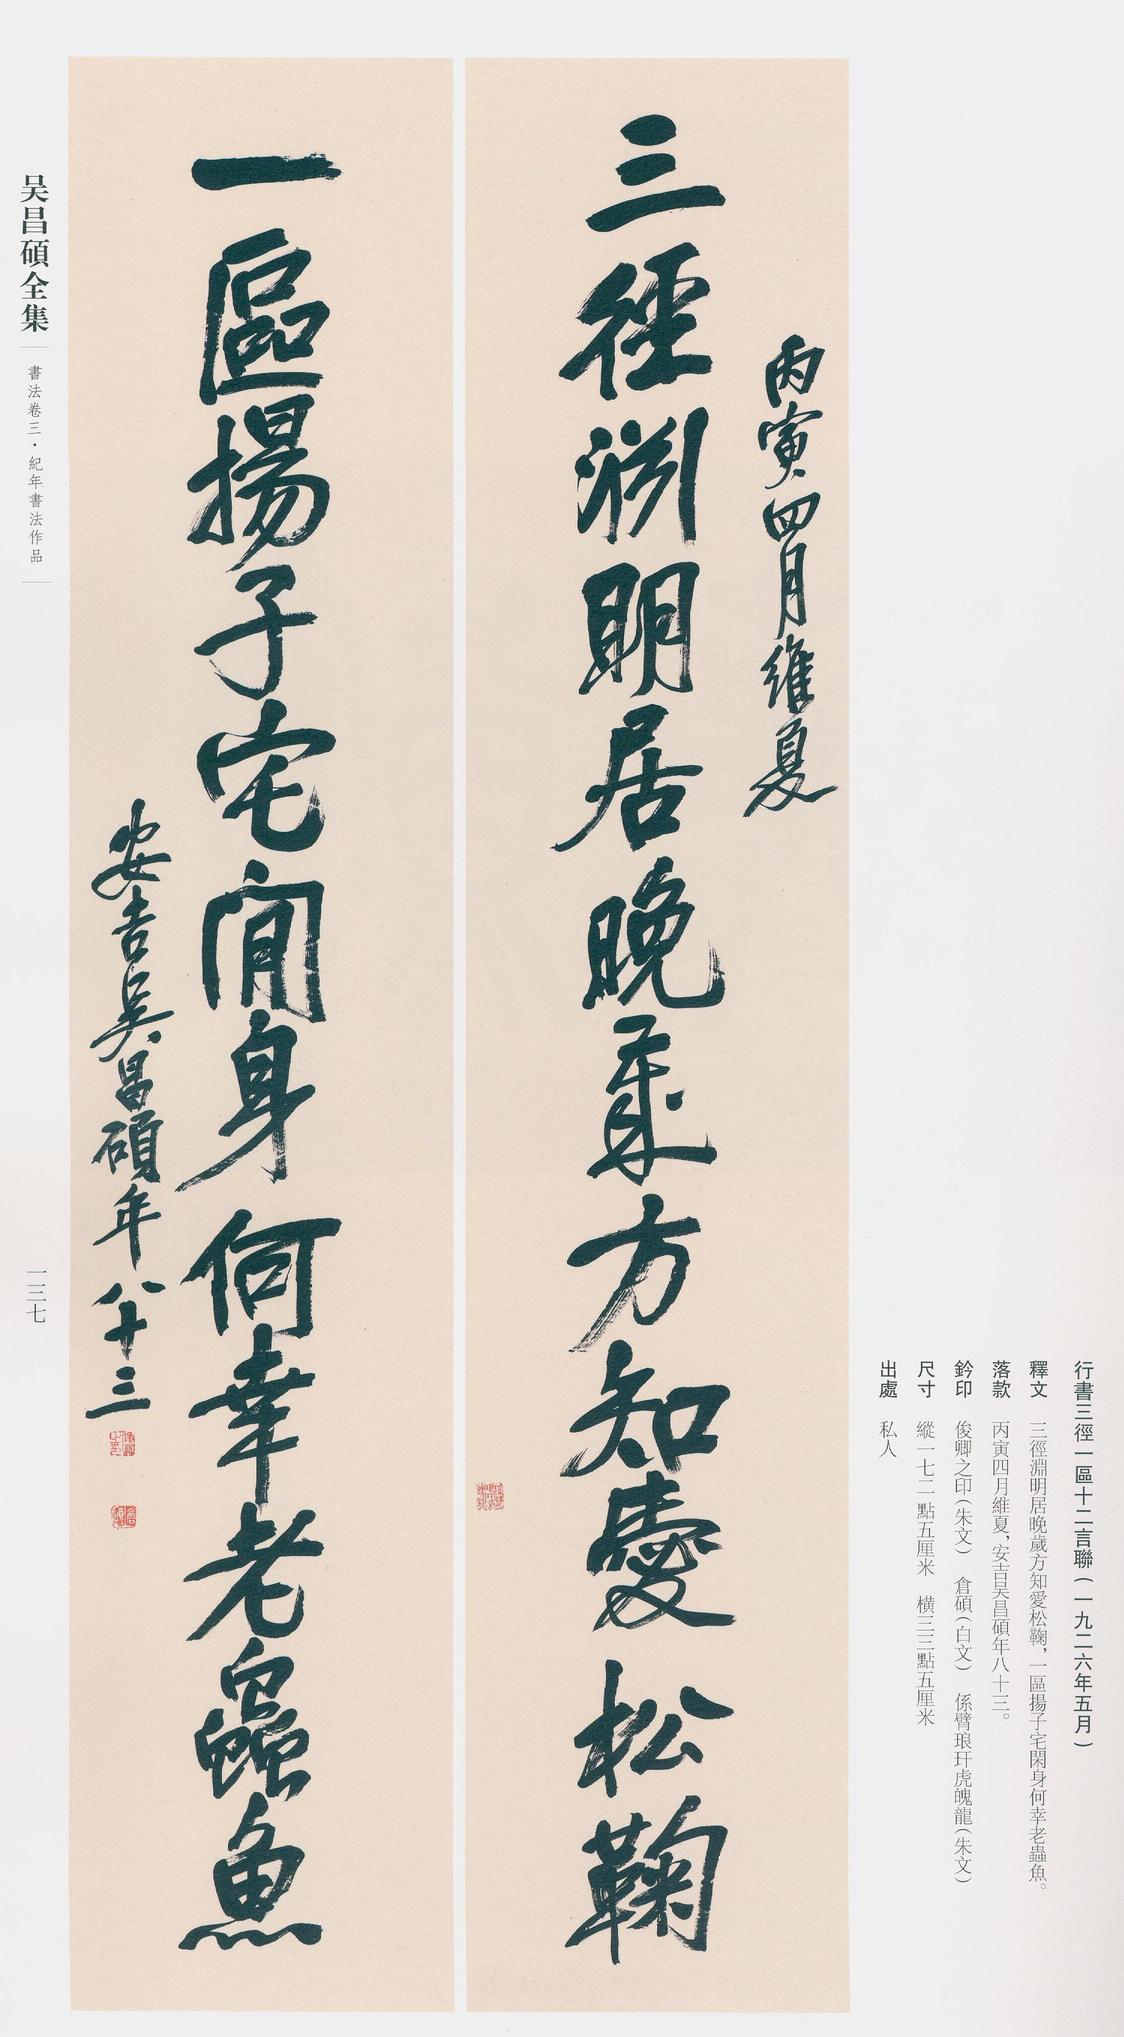 行書三徑一區十二言聯(一九二六年五月)
釋文 三徑淵明居晚歲方知愛松鞠，一區揚子宅閑身何幸老蟲魚。
落款 丙寅四月維夏，安吉吴昌碩年八十三。
鈐印 俊卿之印(朱文) 倉碩(白文) 係臂琅玕虎魄龍(朱文)
尺寸 縱一七二點五厘米 橫三三點五厘米
出處 私人
丙寅四月維夏
三徑淵明居晚歲方知愛松鞠
一區揚子宅閒身何幸老蟲魚
安吉吳昌碩年八十三
吴昌碩全集
書法卷三·紀年書法作品
一三七